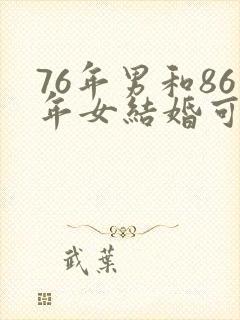 76年男和86
年女結婚可
武葉